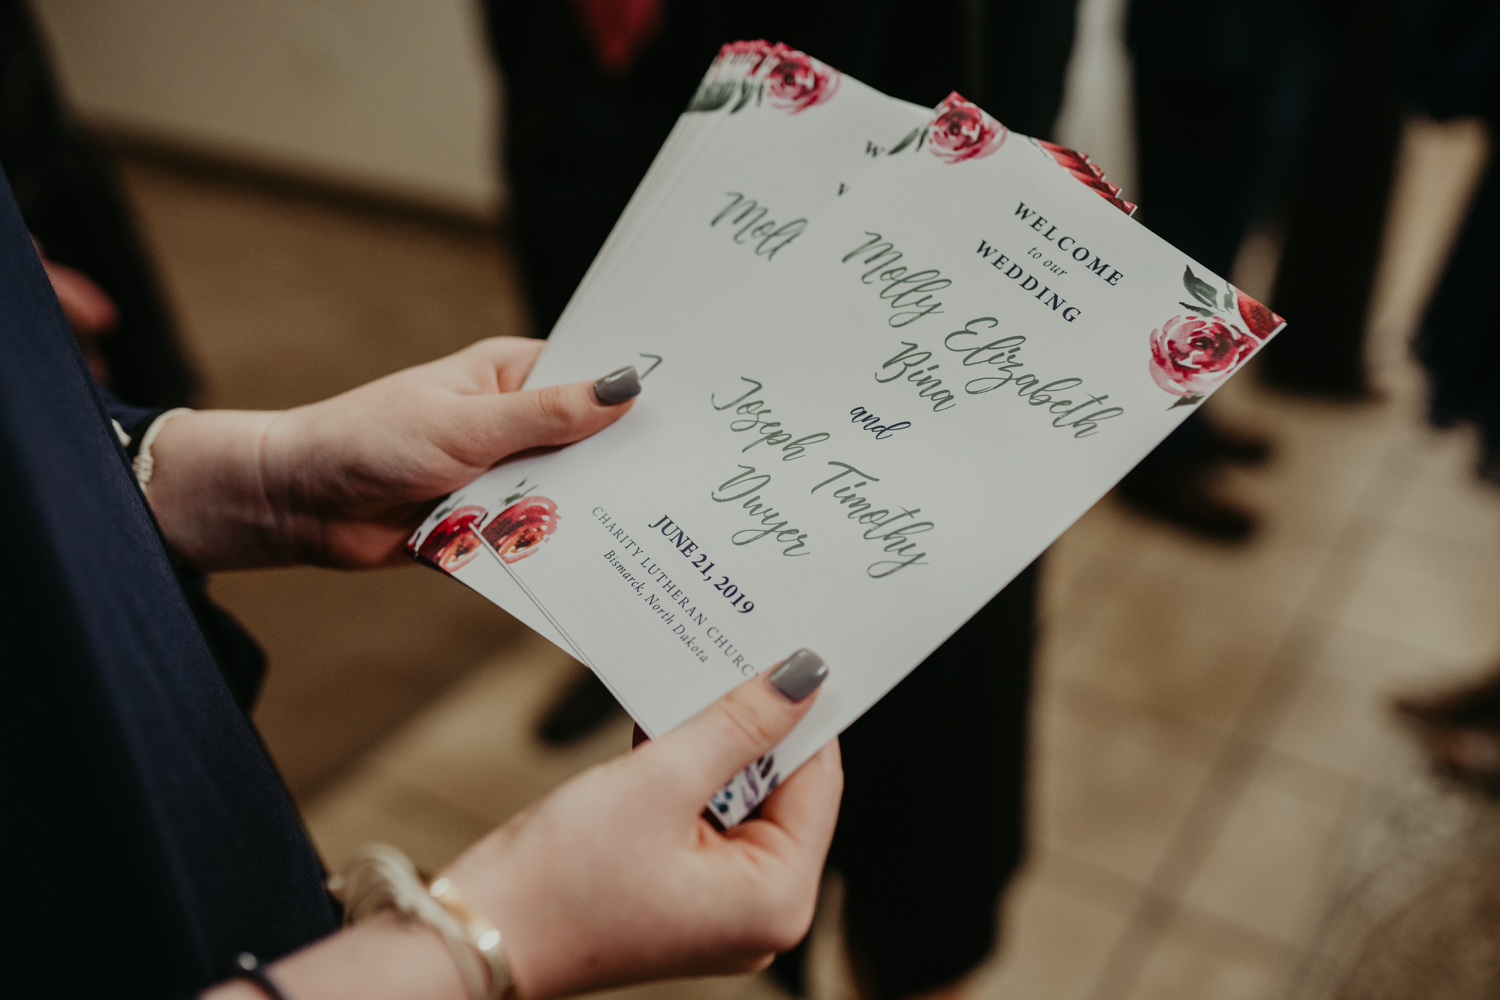 WELCOME
to our
WEDDING
Molly Elizabeth
Bina
and
Joseph Timothy
Dwyer
JUNE 21, 2019
CHARITY LUTHERAN CHURC
Bismarck, North Dakota
W
W
Moll
J